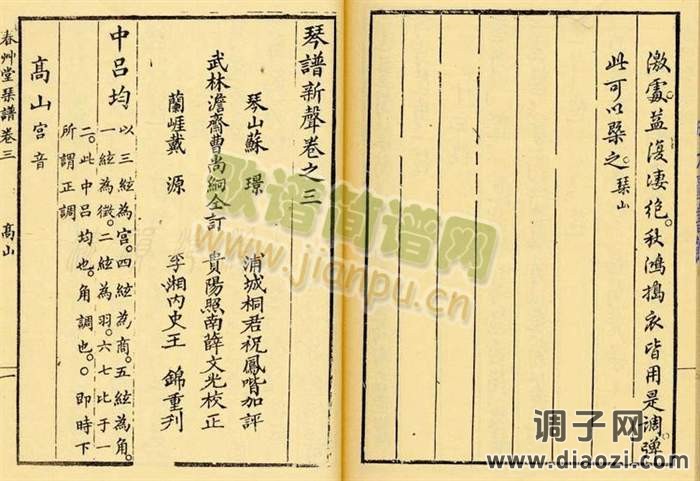 激處益復凄絶。秋鴻搗衣皆用是調。彈
此可以槩之。琴山
琴譜新聲卷之三
琴山蘇 璟 浦城桐君祝鳳喈加評
武林澹齋曹尚絅仝訂 貴陽照南薛文光校正
蘭崖戴 源 季湘內史王 錦重刋
中呂均
以三絃為宮。四絃為商。五絃為角。
一絃為徵。二絃為羽。六七比于一
二。此中呂均也。角調也。○即時下
所謂正調
高山宮音
春艸堂琴譜卷三 高山 一
歌谱简谱网
www.jianpu.cn
调子网
www.diaozi.com